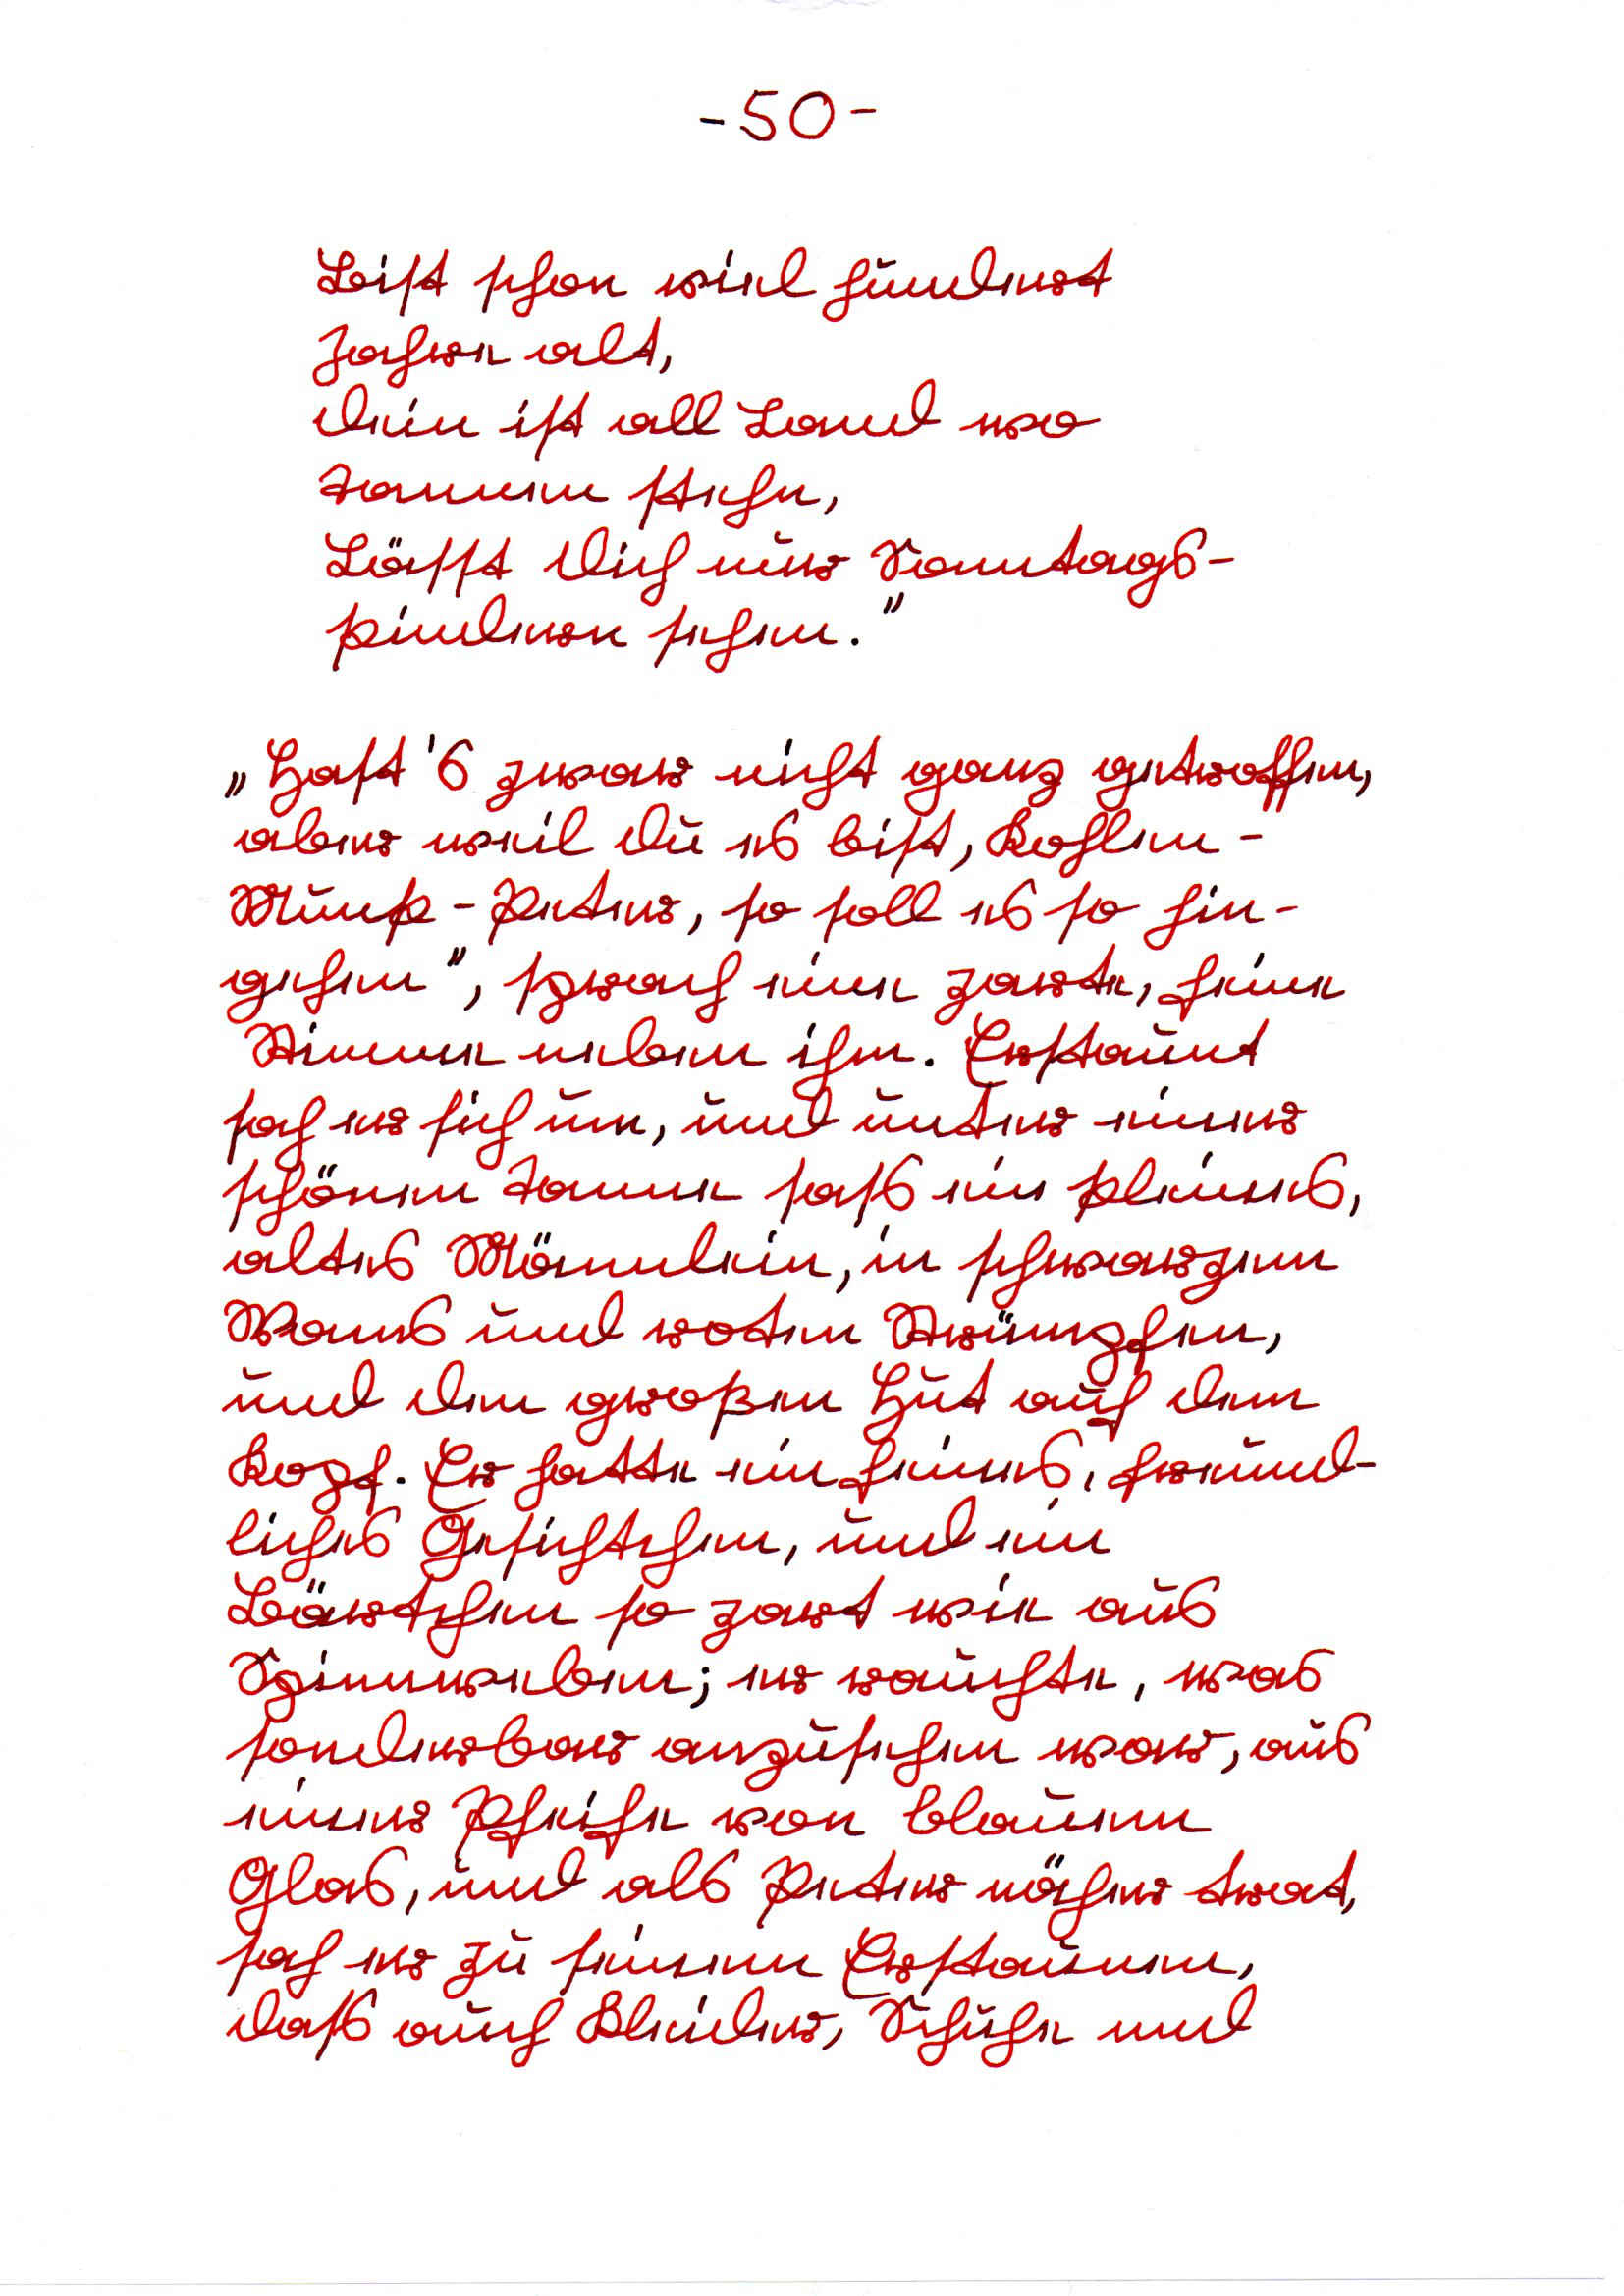 -50-
Bist schon viel hundert
Jahre alt,
dein ist all Land wo
Tannen stehn,
Läßt dich nur Sonntags-
kindern sehen."
„Hast's zwar nicht ganz getroffen,
aber weil du es bist, Kohlen-
Munk-Peter, so soll es so hin-
gehen", sprach eine zarte, feine
Stimme neben ihm. Erstaunt
sah er sich um, und unter einer
schönen Tanne saß ein kleines,
altes Männlein, in schwarzem
Wams und roten Strümpfen,
und den großen Hut auf dem
Kopf. Er hatte ein feines, freund-
liches Gesichtchen, und ein
Bärtchen so zart wie aus
Spinnweben; er rauchte, was
sonderbar anzusehen war, aus
einer Pfeife von blauem
Glas, und als Peter näher trat,
sah er zu seinem Erstaunen,
daß auch Kleider, Schuhe und